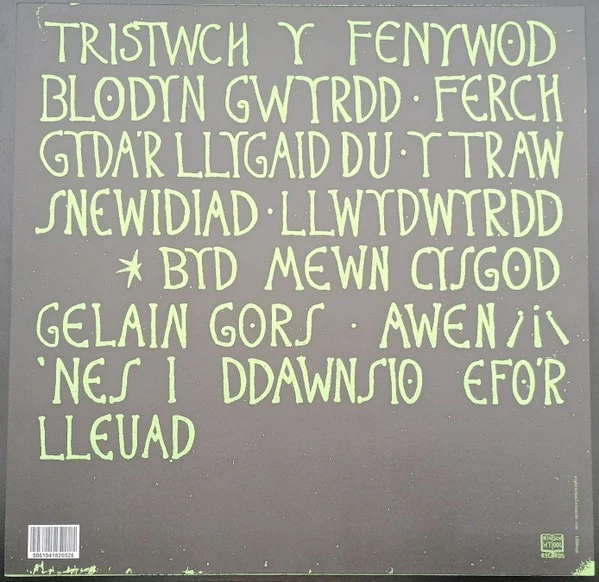 TRISTWCH Y FENYWOD
BLODYN GWYRDD · FERCH
GYDA'R LLYGAID DU · Y TRAW
SNEWIDIAD · LLWYDWYRDD
* BYD MEWN CYSGOD
GELAIN GORS · AWEN /i\
'NES I DDAWNSIO EFO'R
LLEUAD
5061041820526
NIGHT SCHOOL
RECORDS